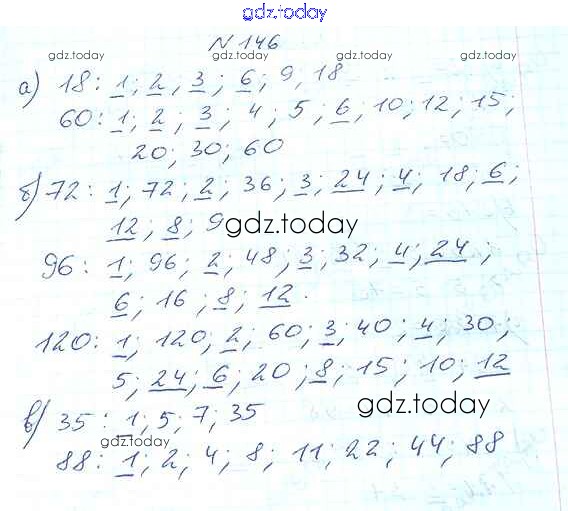 gdz.today
N 146
gdz.today gdz.today gdz.today gdz.today
а) 18: 1; 2; 3; 6; 9, 18
60: 1; 2; 3; 4; 5; 6; 10; 12; 15;
20; 30; 60
б) 72: 1; 72; 2; 36; 3; 24; 4; 18; 6;
12; 8; 9
gdz.today
96: 1; 96; 2; 48; 3; 32; 4; 24;
6; 16; 8; 12.
120: 1; 120; 2; 60; 3; 40; 4; 30;
5; 24; 6; 20; 8; 15; 10; 12
gdz.today
в) 35: 1; 5; 7; 35
88: 1; 2; 4; 8; 11; 22; 44; 88
gdz.today gdz.today gdz.today gdz.today